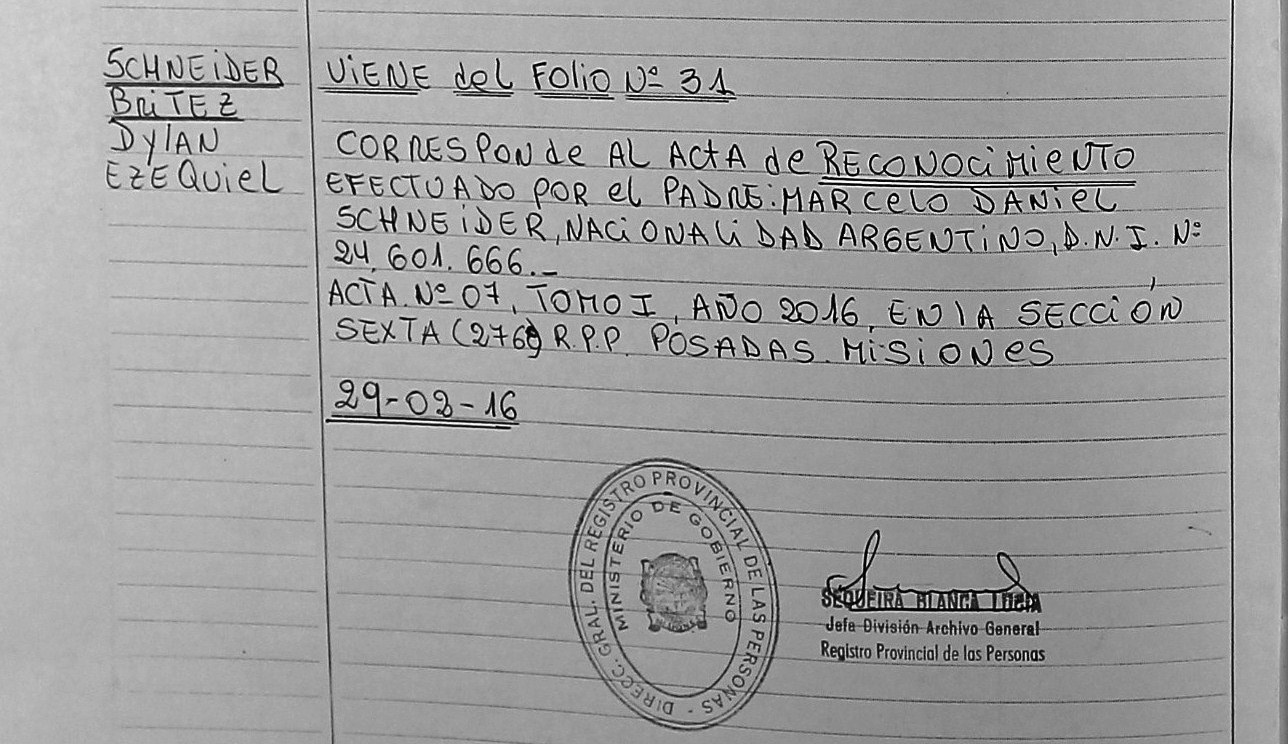 SCHNEIDER
BRITEZ
DYLAN
EZEQUIEL
VIENE del FOLIO Nº 31
CORRESPONde AL ACTA de RECONOCIMIENTO
EFECTUADO POR el PADRE: MARCELO DANIEL
SCHNEIDER, NACIONALIDAD ARGENTINO, D.N.I. Nº
24.601.666.-
ACTA Nº 07, TOMO I, AÑO 2016, EN LA SECCIÓN
SEXTA (276) R.P.P. POSADAS MISIONES
29-02-16
DIRECC. GRAL. DEL REGISTRO PROVINCIAL DE LAS PERSONAS -
MINISTERIO DE GOBIERNO
SEQUEIRA BLANCA LUCIA
Jefa División Archivo General
Registro Provincial de las Personas